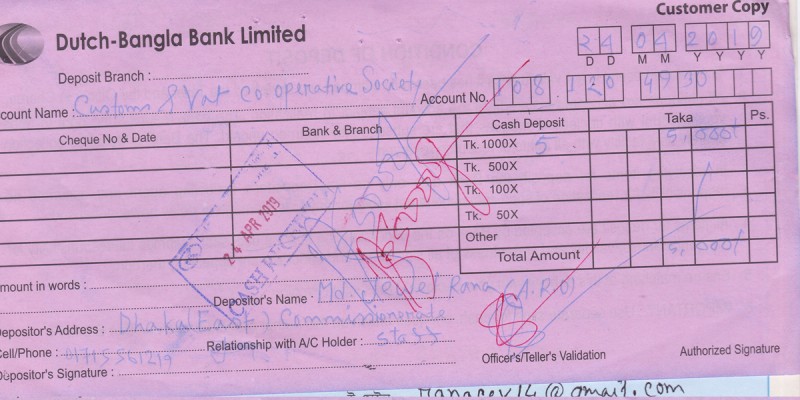 Customer Copy
Dutch-Bangla Bank Limited
24 04 2019
D D M M Y Y Y Y
Deposit Branch :
count Name : Customs & Vat Co operative Society
Account No. 108 120 4930
Cheque No & Date Bank & Branch Cash Deposit Taka Ps.
Tk. 1000X 5 5,000/
Tk. 500X
Tk. 100X
Tk. 50X
Other
Total Amount 5,000/
24 APR 2019
CASH
mount in words :
Depositor's Name : Md. Jewel Rana (A.R.O)
epositor's Address : Dhaka (East) Commissionerate
Cell/Phone : 01715561219
Relationship with A/C Holder : staff
Depositor's Signature :
Officer's/Teller's Validation
Authorized Signature